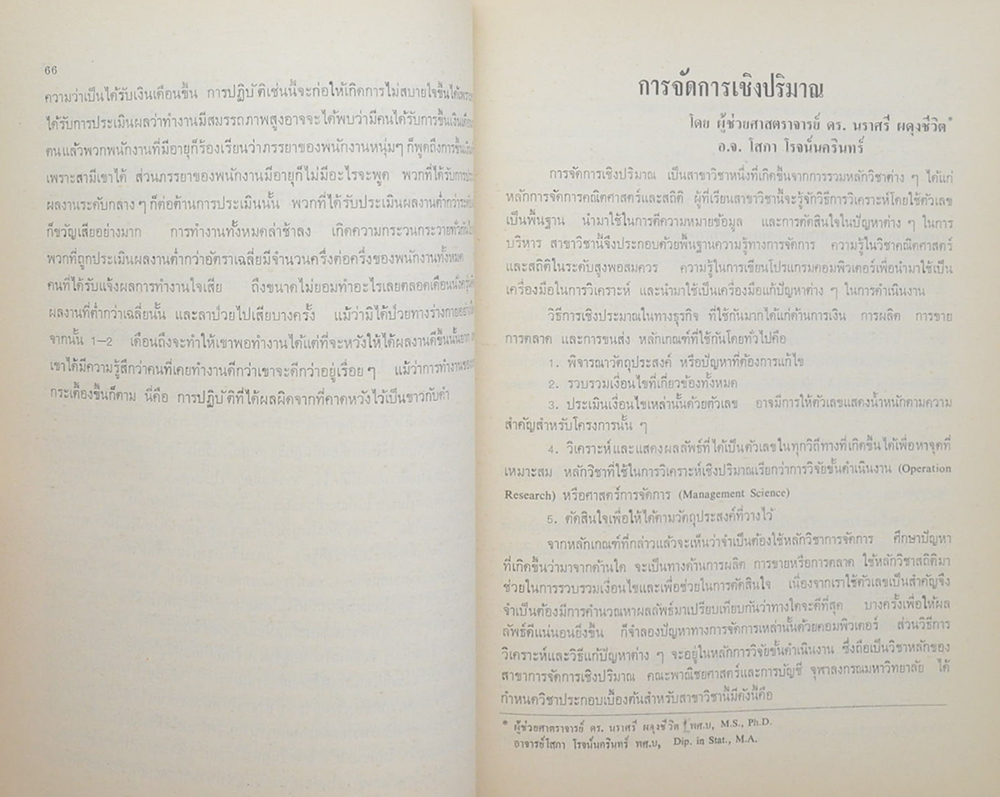 66
ความว่าเป็นได้รับเงินเดือนขึ้น การปฏิบัติเช่นนี้จะก่อให้เกิดการไม่สบายใจขึ้นได้เพราะ
ได้รับการประเมินผลว่าทำงานมีสมรรถภาพสูงอาจจะได้พบว่ามีคนได้รับการขึ้นเงินเดือน
คนแล้วพวกพนักงานที่มีอายุก็ร้องเรียนว่าภรรยาของพนักงานหนุ่มๆ ก็พูดถึงการขึ้นเงิน
เพราะสามีเขาได้ ส่วนภรรยาของพนักงานมีอายุก็ไม่มีอะไรจะพูด พวกที่ได้รับการประ
ผลงานระดับกลาง ๆ ก็ต่อต้านการประเมินนั้น พวกที่ได้รับประเมินผลงานต่ำกว่าระดับ
ก็ขวัญเสียอย่างมาก การทำงานทั้งหมดล่าช้าลง เกิดความกระวนกระวายทั่วกัน
พวกที่ถูกประเมินผลงานต่ำกว่าอัตราเฉลี่ยมีจำนวนครึ่งต่อครึ่งของพนักงานทั้งหมด
คนที่ได้รับแจ้งผลการทำงานใจเสีย ถึงขนาดไม่ยอมทำอะไรเลยตลอดเดือนหนึ่ง
ผลงานที่ต่ำกว่าเฉลี่ยนั้น และลาป่วยไปเสียบางครั้ง แม้ว่ามิได้ป่วยทางร่างกาย
จากนั้น 1-2 เดือนถึงจะทำให้เขาพอทำงานได้แต่ที่จะหวังให้ได้ผลงานดีขึ้นนั้นยาก
เขาได้มีความรู้สึกว่าคนที่เคยทำงานดีกว่าเขาจะดีกว่าอยู่เรื่อย ๆ แม้ว่าการทำงานของ
กระเตื้องขึ้นก็ตาม นี่คือ การปฏิบัติที่ได้ผลผิดจากที่คาดหวังไว้เป็นขาวกับดำ
การจัดการเชิงปริมาณ
โดย ผู้ช่วยศาสตราจารย์ ดร. นราศรี ผดุงชีวิต*
อ.จ. โสภา โรจน์นครินทร์
การจัดการเชิงปริมาณ เป็นสาขาวิชาหนึ่งที่เกิดขึ้นจากการรวมหลักวิชาต่าง ๆ ได้แก่
หลักการการจัดการคณิตศาสตร์และสถิติ ผู้ที่เรียนสาขาวิชานี้จะรู้จักวิธีการวิเคราะห์โดยใช้ตัวเลข
เป็นพื้นฐาน นำมาใช้ในการตีความหมายข้อมูล และการตัดสินใจในปัญหาต่าง ๆ ในการ
บริหาร สาขาวิชานี้จึงประกอบด้วยพื้นฐานความรู้ทางการจัดการ ความรู้ในวิชาคณิตศาสตร์
และสถิติในระดับสูงพอสมควร ความรู้ในการเขียนโปรแกรมคอมพิวเตอร์เพื่อนำมาใช้เป็น
เครื่องมือในการวิเคราะห์ และนำมาใช้เป็นเครื่องมือแก้ปัญหาต่าง ๆ ในการดำเนินงาน
วิธีการเชิงประมาณในทางธุรกิจ ที่ใช้กันมากได้แก่ด้านการเงิน การผลิต การขาย
การตลาด และการขนส่ง หลักเกณฑ์ที่ใช้กันโดยทั่วไปคือ
1. พิจารณาวัตถุประสงค์ หรือปัญหาที่ต้องการแก้ไข
2. รวบรวมเงื่อนไขที่เกี่ยวข้องทั้งหมด
3. ประเมินเงื่อนไขเหล่านั้นด้วยตัวเลข อาจมีการให้ตัวเลขแสดงน้ำหนักตามความ
สำคัญสำหรับโครงการนั้น ๆ
4. วิเคราะห์และแสดงผลลัพธ์ที่ได้เป็นตัวเลขในทุกวิถีทางที่เกิดขึ้นได้เพื่อหาจุดที่
เหมาะสม หลักวิชาที่ใช้ในการวิเคราะห์เชิงปริมาณเรียกว่าการวิจัยขั้นดำเนินงาน (Operation
Research) หรือศาสตร์การจัดการ (Management Science)
5. ตัดสินใจเพื่อให้ได้ตามวัตถุประสงค์ที่วางไว้
จากหลักเกณฑ์ที่กล่าวแล้วจะเห็นว่าจำเป็นต้องใช้หลักวิชาการจัดการ ศึกษาปัญหา
ที่เกิดขึ้นว่ามาจากด้านใด จะเป็นทางด้านการผลิต การขายหรือการตลาด ใช้หลักวิชาสถิติมา
ช่วยในการรวบรวมเงื่อนไขและเพื่อช่วยในการตัดสินใจ เนื่องจากเราใช้ตัวเลขเป็นสำคัญจึง
จำเป็นต้องมีการคำนวณหาผลลัพธ์มาเปรียบเทียบกันว่าทางใดจะดีที่สุด บางครั้งเพื่อให้ผล
ลัพธ์ดีแน่นอนยิ่งขึ้น ก็จำลองปัญหาทางการจัดการเหล่านั้นด้วยคอมพิวเตอร์ ส่วนวิธีการ
วิเคราะห์และวิธีแก้ปัญหาต่าง ๆ จะอยู่ในหลักการวิจัยขั้นดำเนินงาน ซึ่งถือเป็นวิชาหลักของ
สาขาการจัดการเชิงปริมาณ คณะพาณิชยศาสตร์และการบัญชี จุฬาลงกรณมหาวิทยาลัย ได้
กำหนดวิชาประกอบเบื้องต้นสำหรับสาขาวิชานี้มีดังนี้คือ
* ผู้ช่วยศาสตราจารย์ ดร. นราศรี ผดุงชีวิต พศ.บ, M.S., Ph.D.
อาจารย์โสภา โรจน์นครินทร์ พศ.บ, Dip. in Stat., M.A.